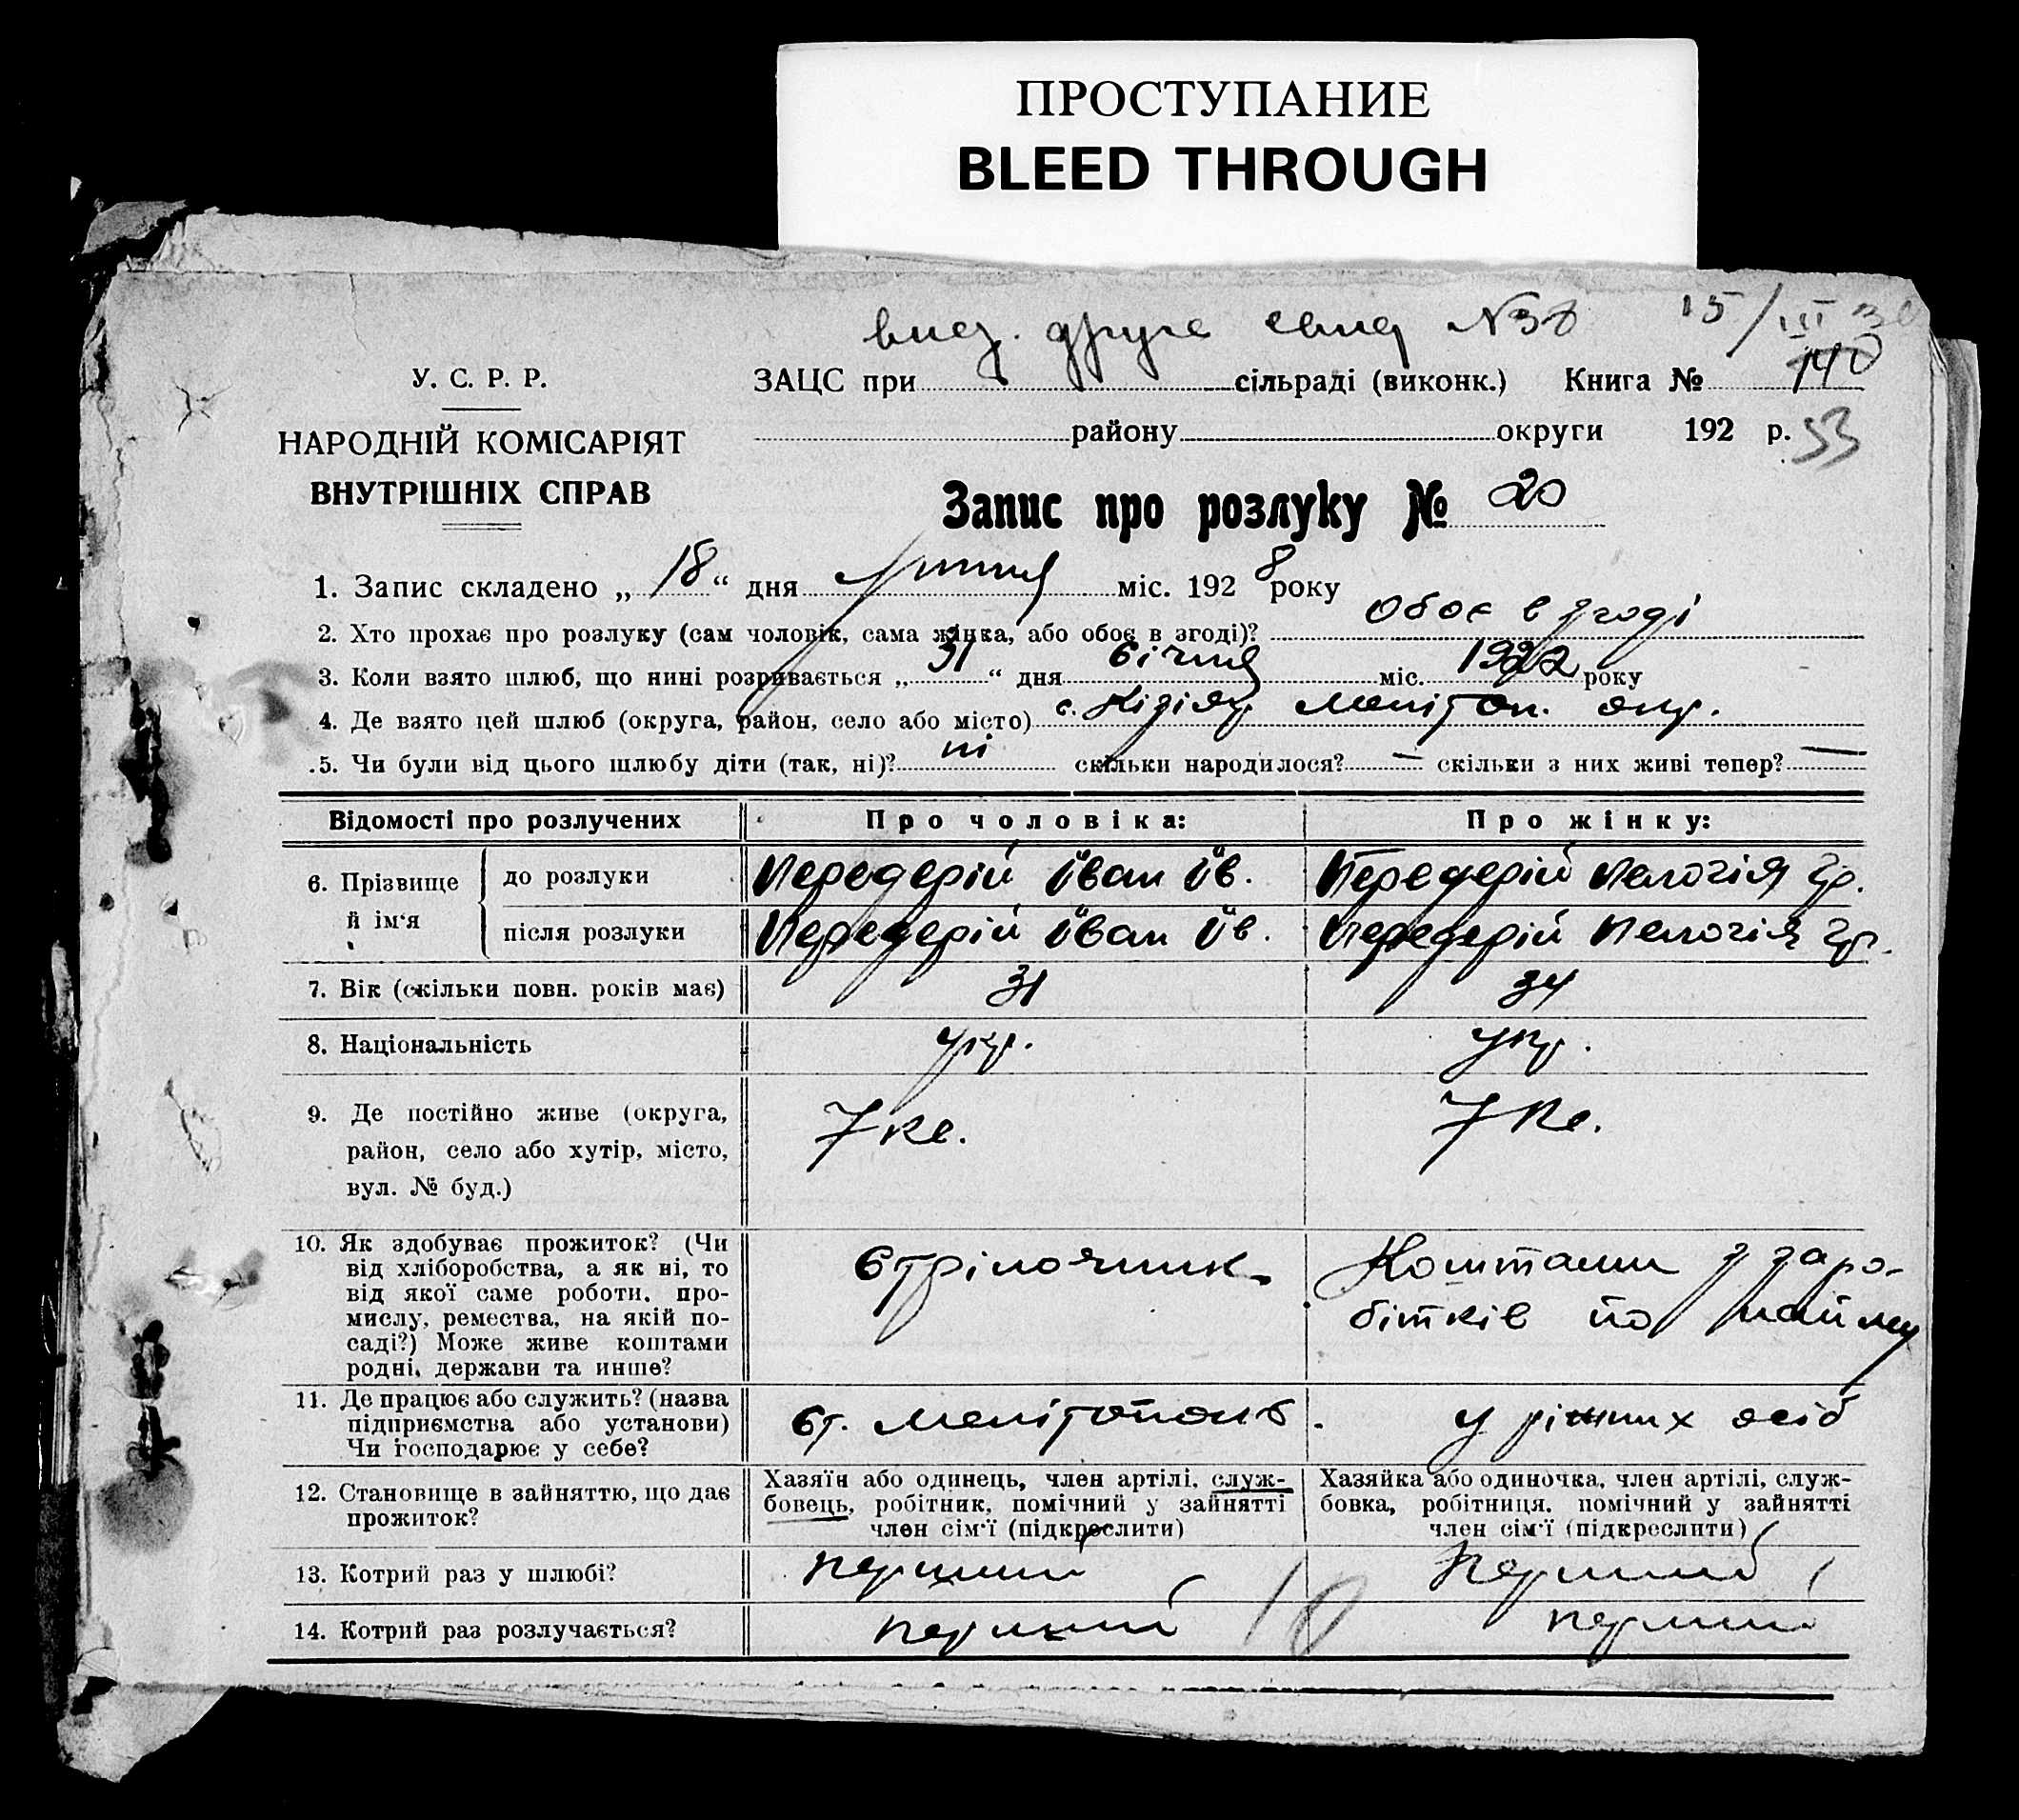 ПРОСТУПАНИЕ
BLEED THROUGH
вид. друге свид N38 15/III 30
140
У. С. Р. Р.
ЗАЦС при сільраді (виконк.) Книга №
НАРОДНІЙ КОМІСАРІЯТ
ВНУТРІШНІХ СПРАВ
району округи 192 р. 53
Запис про розлуку № 20
1. Запис складено „ 18 “ дня липня міс. 192 8 року
2. Хто прохає про розлуку (сам чоловік, сама жінка, або обоє в згоді)? Обоє в згоді
3. Коли взято шлюб, що нині розривається „ 31 “ дня січня міс. 1922 року
4. Де взято цей шлюб (округа, район, село або місто) с. Меліτоп. окр.
5. Чи були від цього шлюбу діти (так, ні)? ні скільки народилося? — скільки з них живі тепер? —
Відомості про розлучених Про чоловіка: Про жінку:
6. Прізвище й ім‘я
до розлуки Передерій Іван Ів. Передерій Пелагія Гр.
після розлуки Передерій Іван Ів. Передерій Пелагія Гр.
7. Вік (скільки повн. років має) 31 34
8. Національність укр. укр.
9. Де постійно живе (округа,
район, село або хутір, місто,
вул. № буд.)
10. Як здобуває прожиток? (Чи
від хліборобства, а як ні, то
від якої саме роботи, про-
мислу, ремества, на якій по-
саді?) Може живе коштами
родні, держави та инше?
стрілочник
Коштами з заро-
бітків по найму
11. Де працює або служить? (назва
підприємства або установи)
Чи господарює у себе?
ст. Мелітополь
у ріжних осіб
12. Становище в зайняттю, що дає
прожиток?
Хазяїн або одинець, член артілі, служ-
бовець, робітник, помічний у зайнятті
член сім‘ї (підкреслити)
Хазяйка або одиночка, член артілі, служ-
бовка, робітниця, помічний у зайнятті
член сім‘ї (підкреслити)
13. Котрий раз у шлюбі? перший перший
14. Котрий раз розлучається? перший перший
10